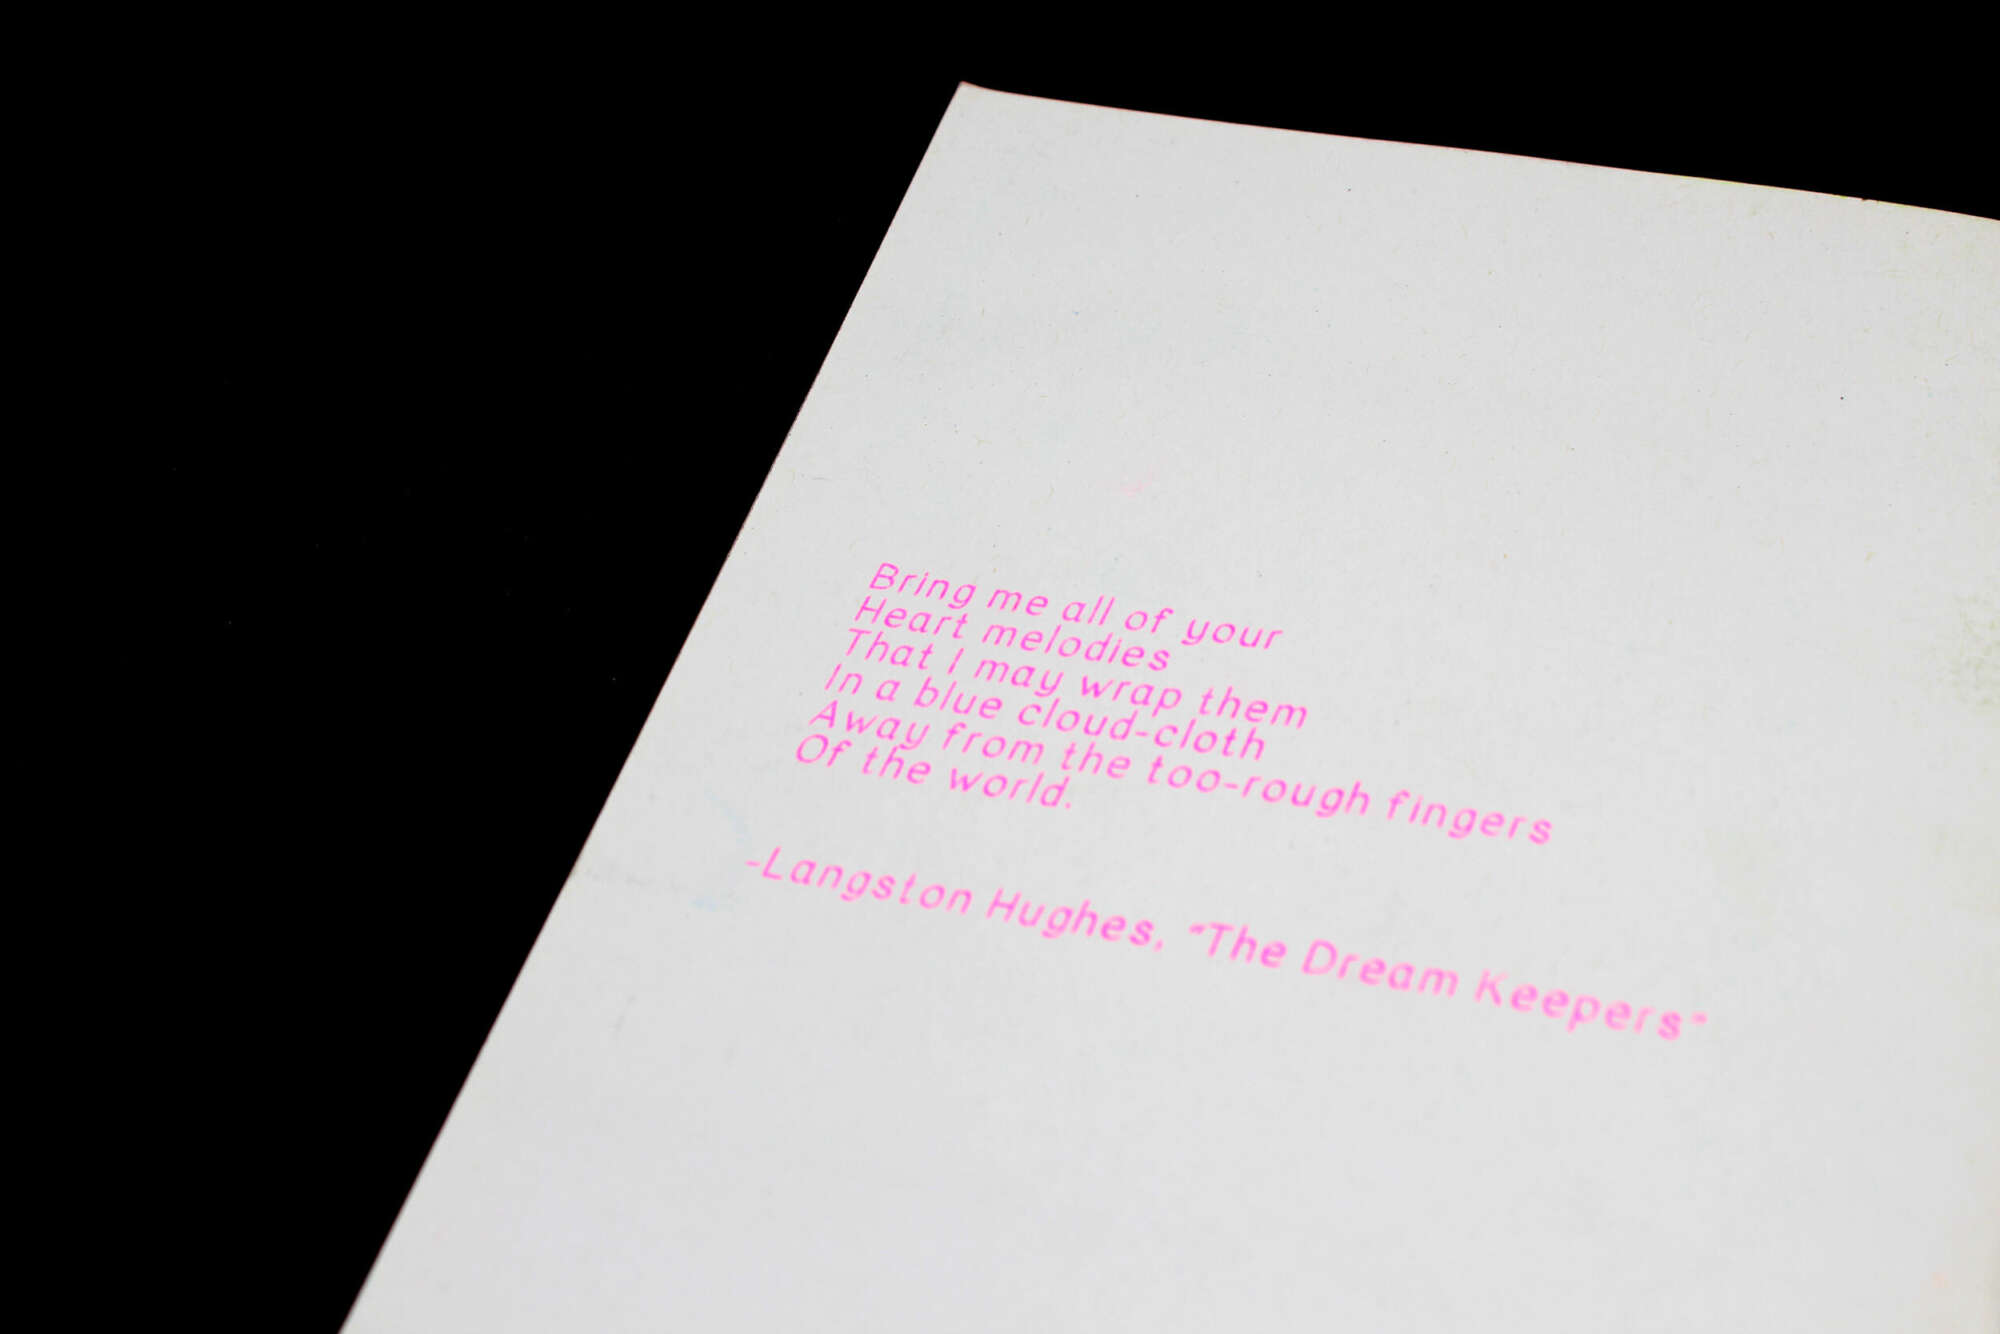 Bring me all of your
Heart melodies
That I may wrap them
In a blue cloud-cloth
Away from the too-rough fingers
Of the world.
-Langston Hughes, "The Dream Keepers"